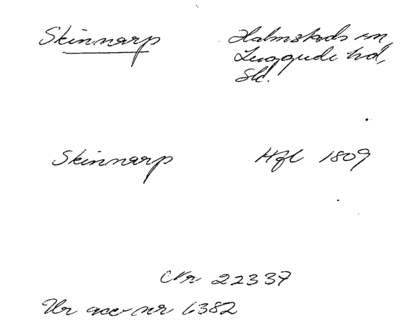 Skinnarp Halmstads sn,
Luggude hd,
Sk.
Skinnarp Hfl 1809
CNr 22337
Ur acc nr 6382